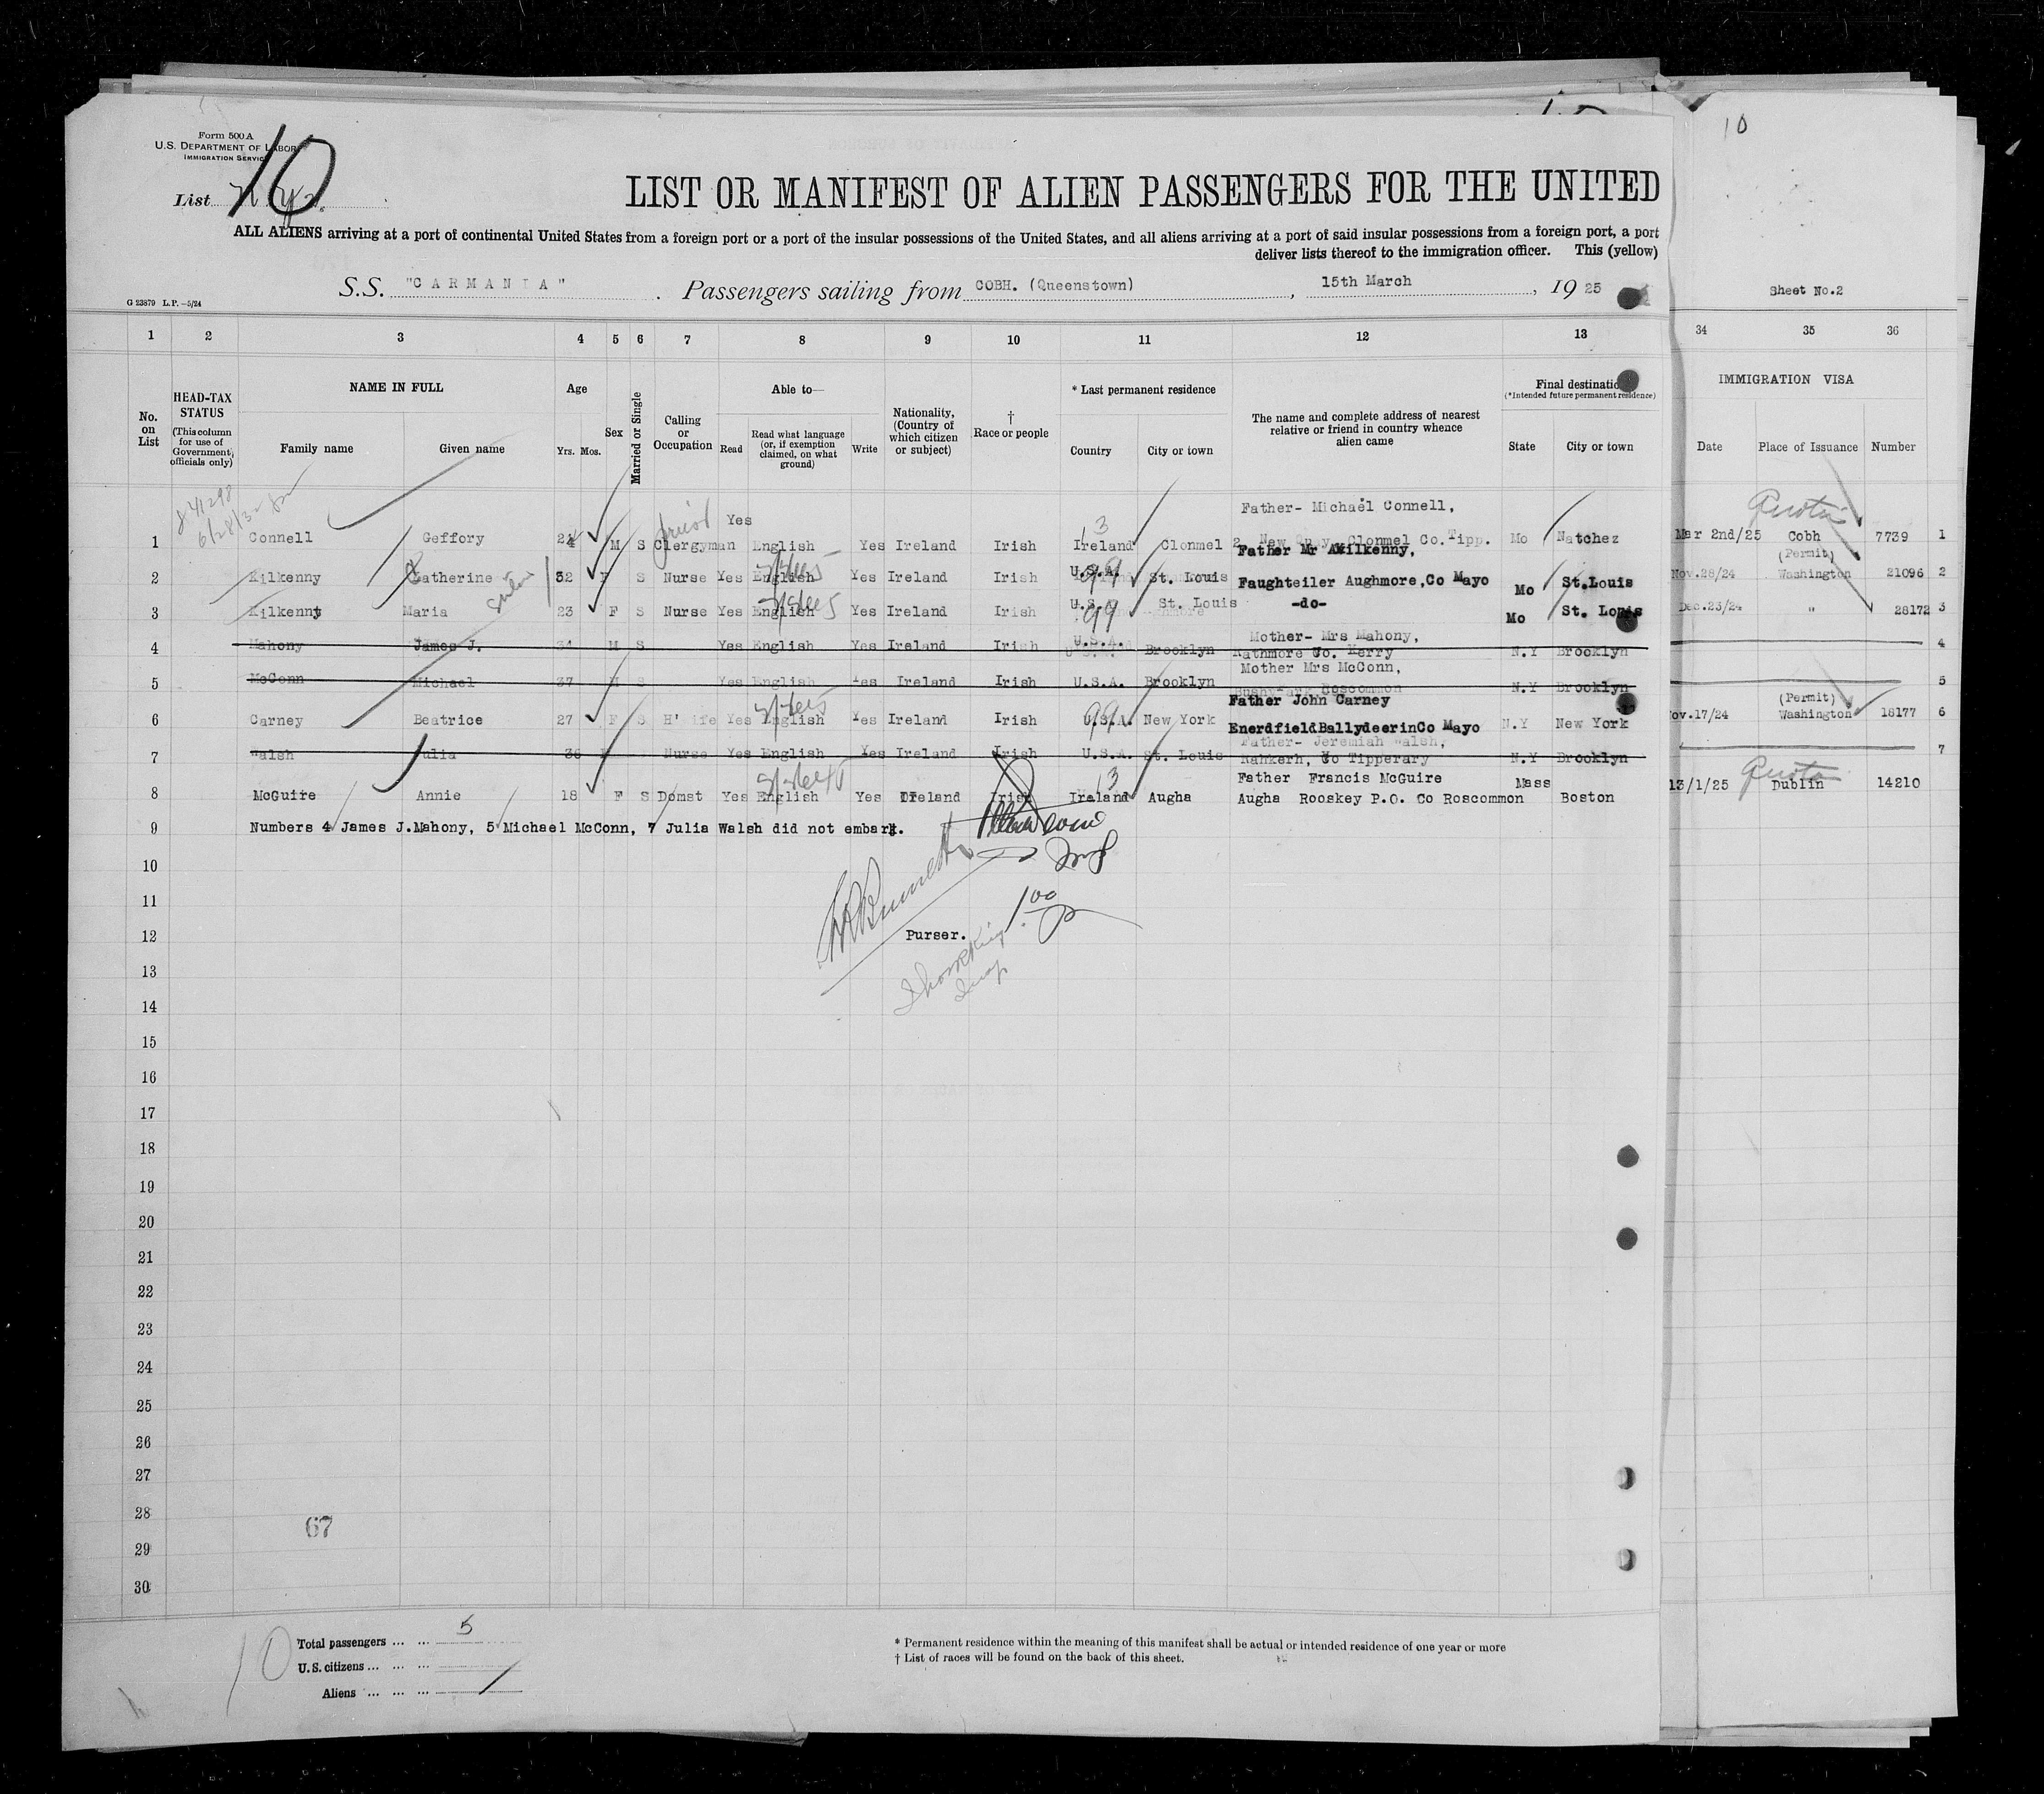 Form 500 A
U.S. DEPARTMENT OF LABOR
IMMIGRATION SERVICE
List 10
10
LIST OR MANIFEST OF ALIEN PASSENGERS FOR THE UNITED
ALL ALIENS arriving at a port of continental United States from a foreign port or a port of the insular possessions of the United States, and all aliens arriving at a port of said insular possessions from a foreign port, a port
deliver lists thereof to the immigration officer. This (yellow)
G 23879 L.P.—5/24
S.S. "CARMANIA". Passengers sailing from COBH. (Queenstown), 15th March, 1925
Sheet No.2
1 2 3 4 5 6 7 8 9 10 11 12 13 34 35 36
No. on List
HEAD-TAX STATUS (This column for use of Government officials only)
NAME IN FULL
Family name Given name
Age
Yrs. Mos.
Sex
Married or Single
Calling or Occupation
Able to—
Read
Read what language (or, if exemption claimed, on what ground)
Write
Nationality, (Country of which citizen or subject)
† Race or people
* Last permanent residence
Country City or town
The name and complete address of nearest relative or friend in country whence alien came
Final destination
(*Intended future permanent residence)
State City or town
IMMIGRATION VISA
Date Place of Issuance Number
Father- Michael Connell,
Quota
1 Connell Geffory M S Clergyman Yes English Yes Ireland Irish Ireland 3 Clonmel 2 New Quay, Clonmel Co.Tipp. Mo Natchez Mar 2nd/25 Cobh 7739 1
Father Mr Kilkenny,
(Permit)
2 Kilkenny Catherine 32 F S Nurse Yes English Yes Ireland Irish U.S.A. 99 St. Louis Faughteiler Aughmore,Co Mayo Mo St.Louis Nov.28/24 Washington 21096 2
3 Kilkenny Maria 23 F S Nurse Yes English Yes Ireland Irish U.S.A. 99 St. Louis -do- Mo St. Louis Dec.23/24 " 28172 3
Mother- Mrs Mahony,
4 Mahony James J. 34 M S Yes English Yes Ireland Irish U.S.A. Brooklyn Rathmore Co. Kerry N.Y Brooklyn 4
Mother Mrs McConn,
5 McConn Michael 37 M S Yes English Yes Ireland Irish U.S.A. Brooklyn Roscommon N.Y Brooklyn 5
Father John Carney
(Permit)
6 Carney Beatrice 27 F S H'wife Yes English Yes Ireland Irish U.S.A. 99 New York EnerdfieldBallydeerinCo Mayo N.Y New York Nov.17/24 Washington 18177 6
Father- Jeremiah Walsh,
7 Walsh Julia 36 F Nurse Yes English Yes Ireland Irish U.S.A. St. Louis Rahkerh, Co Tipperary N.Y Brooklyn 7
Father Francis McGuire Mass
Quota
8 McGuire Annie 18 F S Domst Yes English Yes Ireland Irish Ireland 3 Augha Augha Rooskey P.O. Co Roscommon Boston 13/1/25 Dublin 14210
9 Numbers 4 James J.Mahony, 5 Michael McConn, 7 Julia Walsh did not embark.
10
11
12 Purser.
13
14
15
16
17
18
19
20
21
22
23
24
25
26
27
28
67
29
30
10
Total passengers ... ... 5
U.S. citizens ... ... ...
Aliens ... ... ...
* Permanent residence within the meaning of this manifest shall be actual or intended residence of one year or more
† List of races will be found on the back of this sheet.